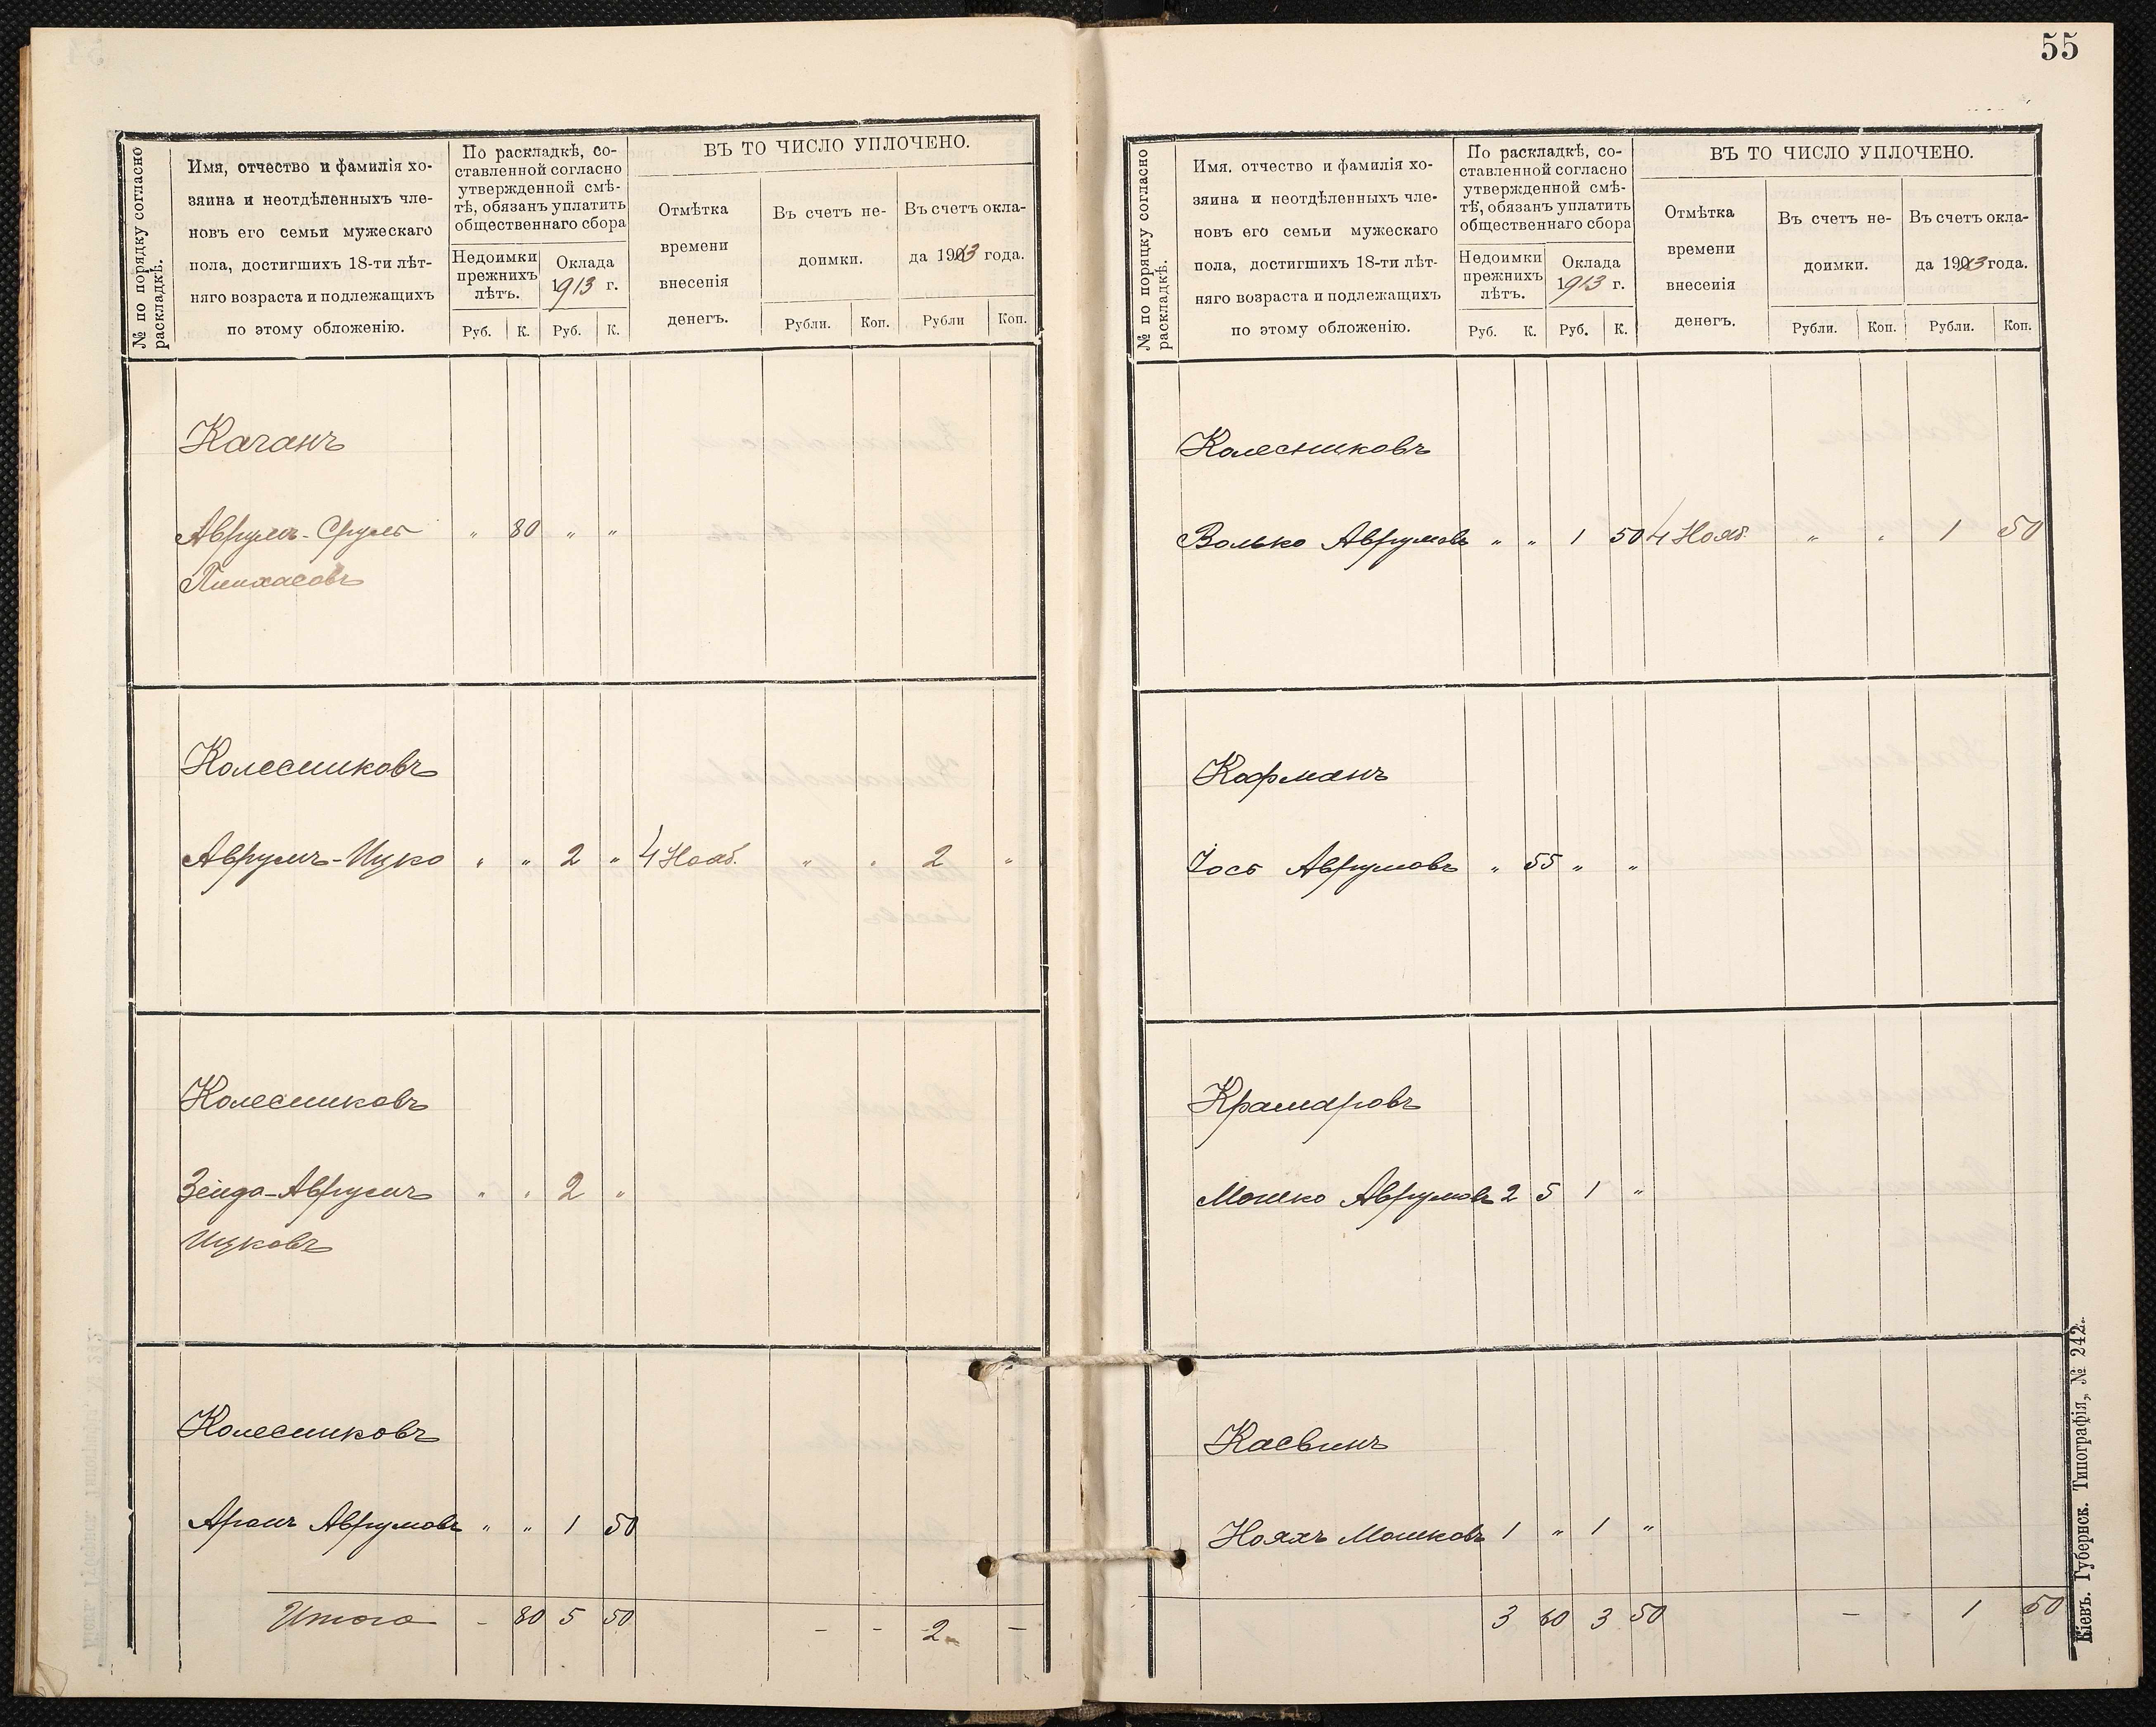 55
№ по порядку согласно
раскладкѣ.
Имя, отчество и фамилія хо-
зяина и неотдѣленныхъ чле-
новъ его семьи мужескаго
пола, достигшихъ 18-ти лѣт-
няго возраста и подлежащихъ
по этому обложенію.
По раскладкѣ, со-
ставленной согласно
утвержденной смѣ-
тѣ, обязанъ уплатить
общественнаго сбора
Недоимки
прежнихъ
лѣтъ.
Оклада
1913 г.
Руб. К. Руб. К.
ВЪ ТО ЧИСЛО УПЛОЧЕНО.
Отмѣтка
времени
внесенія
денегъ.
Въ счетъ не-
доимки.
Рубли. Коп.
Въ счетъ окла-
да 1913 года.
Рубли Коп.
Каганъ
Аврумъ-Сруль " 80 " "
Пинхасовъ
Колесниковъ
Аврумъ-Ицко " " 2 " 4 Нояб. " " 2 "
Колесниковъ
Зейда-Аврумъ " " 2 "
Ицковъ
Колесниковъ
Аронъ Аврумовъ " " 1 50
Итого - 80 5 50 - - 2 -
№ по порядку согласно
раскладкѣ.
Имя, отчество и фамилія хо-
зяина и неотдѣленныхъ чле-
новъ его семьи мужескаго
пола, достигшихъ 18-ти лѣт-
няго возраста и подлежащихъ
по этому обложенію.
По раскладкѣ, со-
ставленной согласно
утвержденной смѣ-
тѣ, обязанъ уплатить
общественнаго сбора
Недоимки
прежнихъ
лѣтъ.
Оклада
1913 г.
Руб. К. Руб. К.
ВЪ ТО ЧИСЛО УПЛОЧЕНО.
Отмѣтка
времени
внесенія
денегъ.
Въ счетъ не-
доимки.
Рубли. Коп.
Въ счетъ окла-
да 1913 года.
Рубли. Коп.
Колесниковъ
Волько Аврумовъ " " 1 50 4 Нояб. " " 1 50
Кофманъ
Іось Аврумовъ " 55 " "
Крамаровъ
Мошко Аврумовъ 2 5 1 "
Касвинъ
Нояхъ Мошковъ 1 " 1 "
3 60 3 50 - - 1 50
Кіевъ. Губернск. Типографія, № 242.